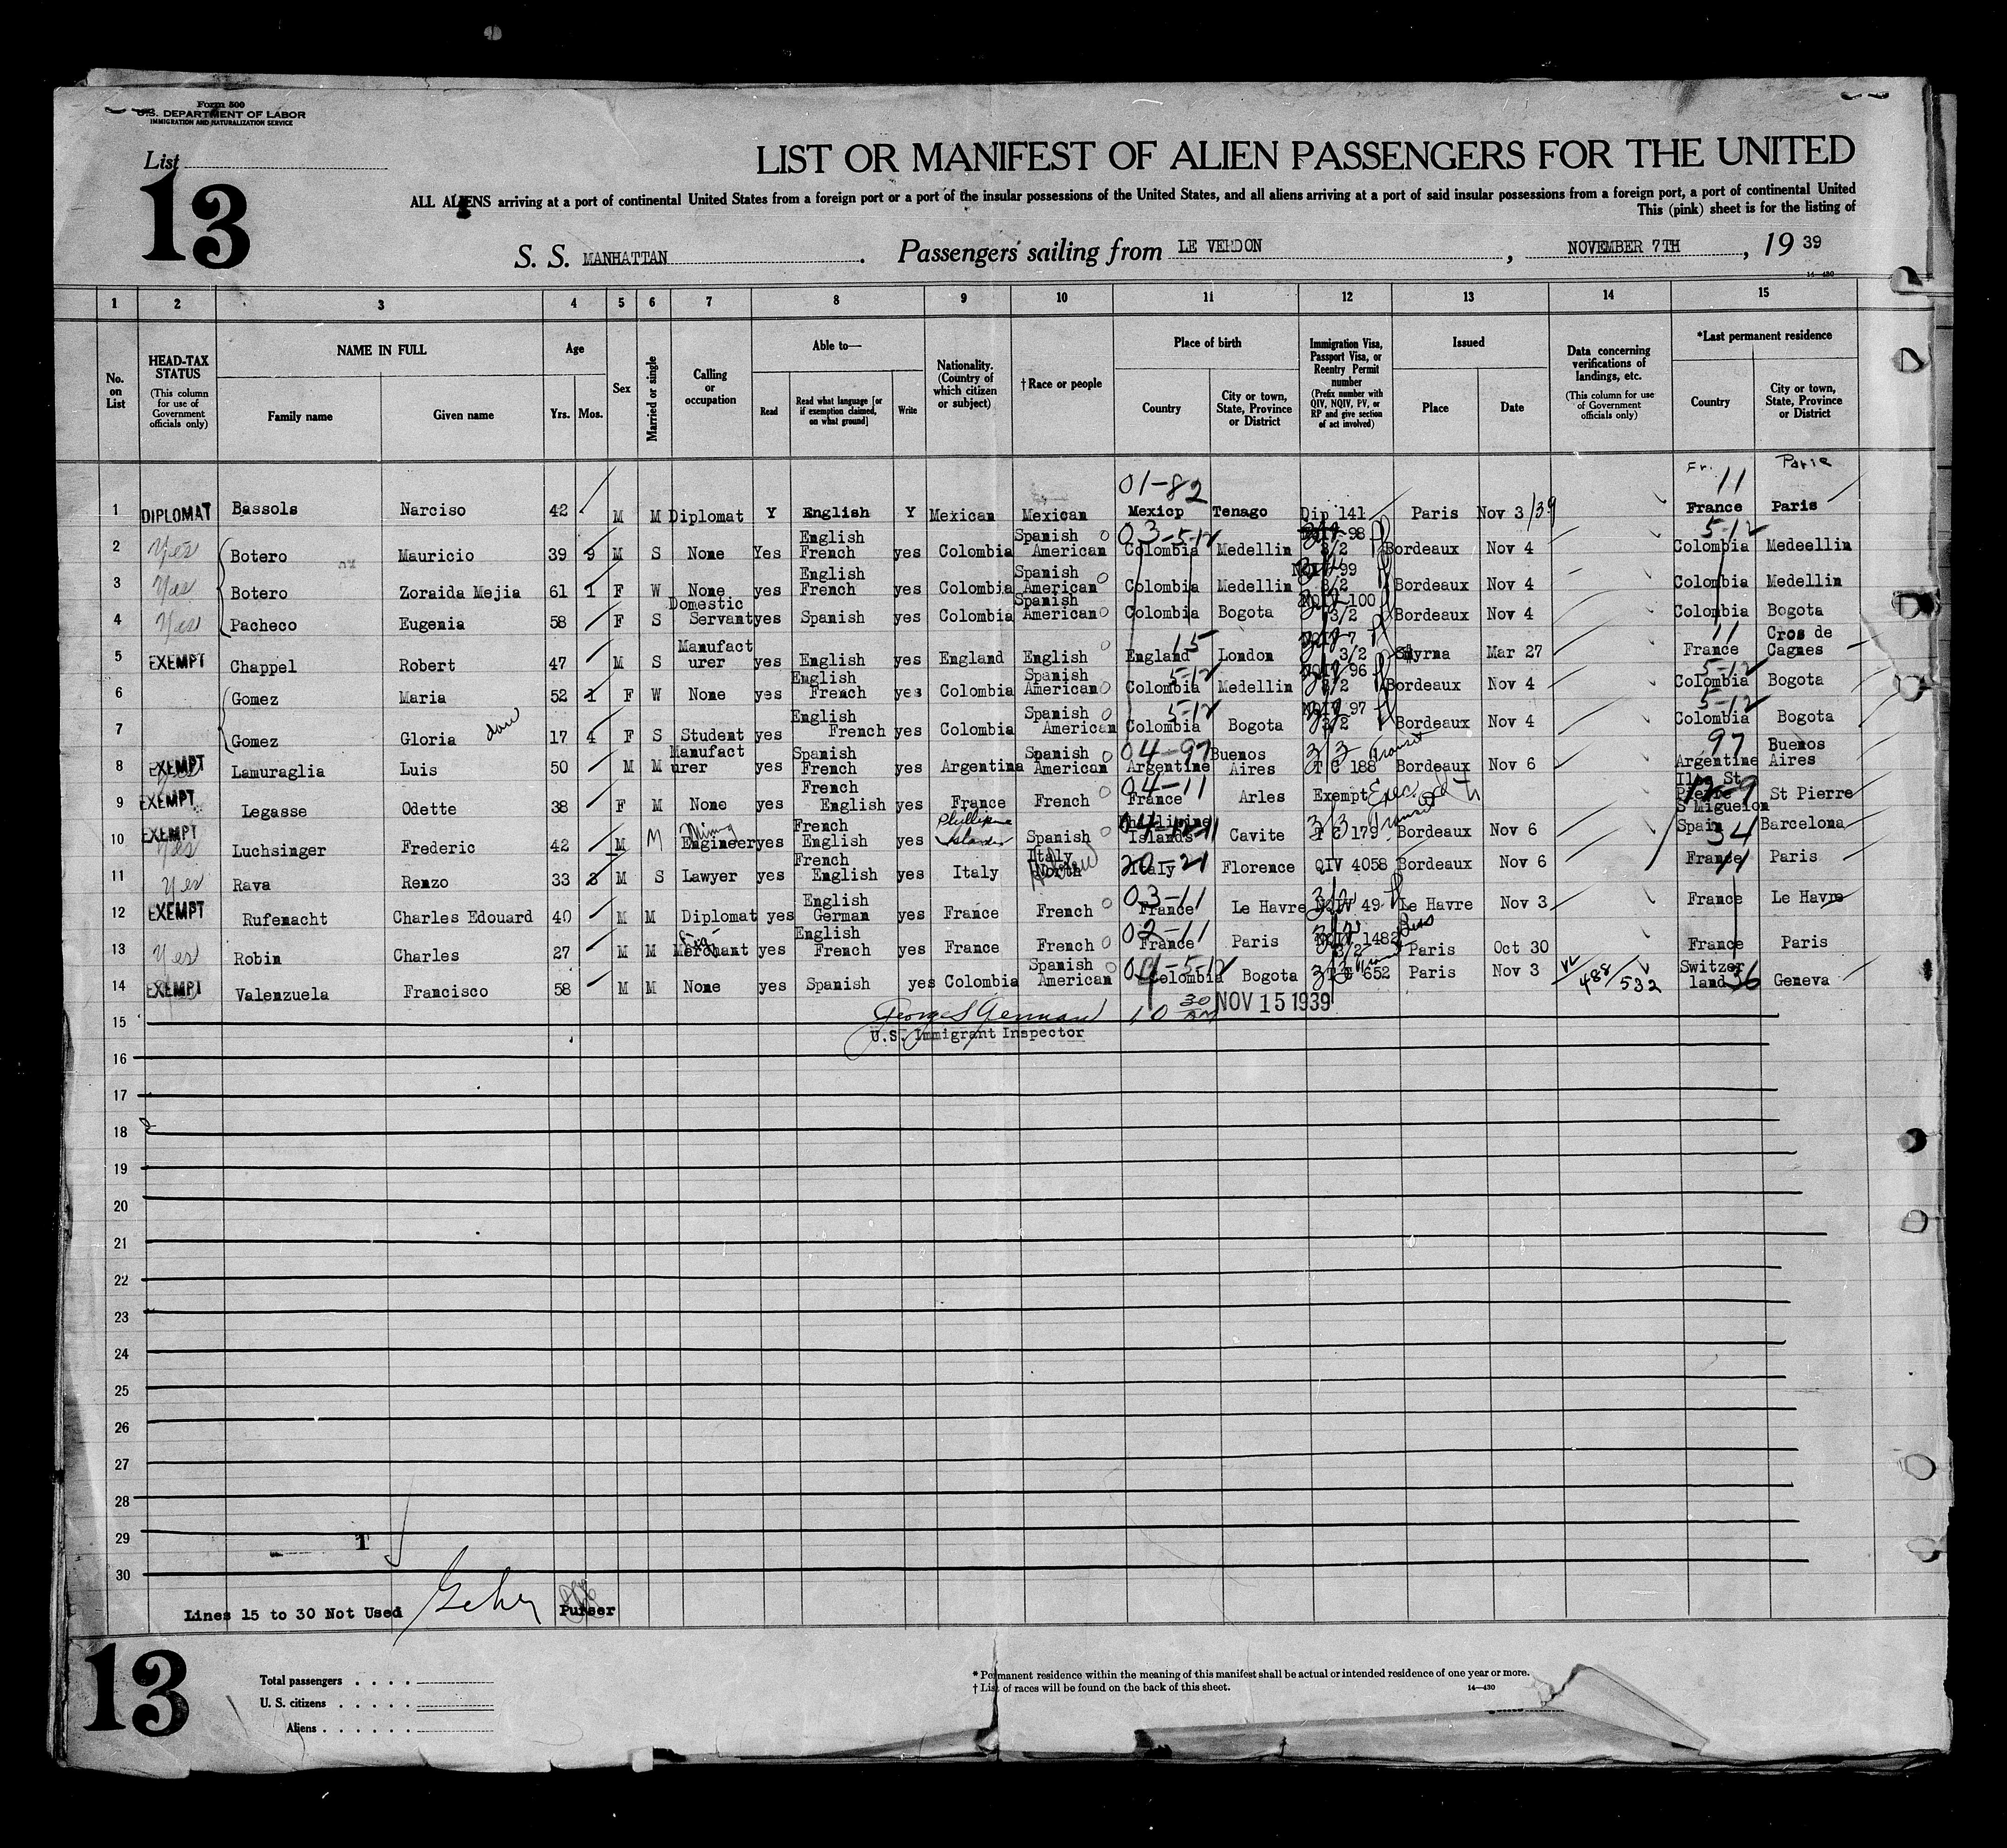 Form 500
U.S. DEPARTMENT OF LABOR
IMMIGRATION AND NATURALIZATION SERVICE
List
13
LIST OR MANIFEST OF ALIEN PASSENGERS FOR THE UNITED
ALL ALIENS arriving at a port of continental United States from a foreign port or a port of the insular possessions of the United States, and all aliens arriving at a port of said insular possessions from a foreign port, a port of continental United
This (pink) sheet is for the listing of
S. S. MANHATTAN. Passengers sailing from LE VERDON, NOVEMBER 7TH, 19 39
14-430
1 2 3 4 5 6 7 8 9 10 11 12 13 14 15
No. on List
HEAD-TAX STATUS (This column for use of Government officials only)
NAME IN FULL Family name Given name
Age Yrs. Mos.
Sex
Married or single
Calling or occupation
Able to— Read Read what language [or if exemption claimed, on what ground] Write
Nationality. (Country of which citizen or subject)
† Race or people
Place of birth Country City or town, State, Province or District
Immigration Visa, Passport Visa, or Reentry Permit number (Prefix number with QIV, NQIV, PV, or RP and give section of act involved)
Issued Place Date
Data concerning verifications of landings, etc. (This column for use of Government officials only)
*Last permanent residence Country City or town, State, Province or District
01-82 Fr. 11 Paris
1 DIPLOMAT Bassols Narciso 42 M M Diplomat Y English Y Mexican Mexican Mexicp Tenago Dip 141 Paris Nov 3/39 France Paris
2 Yes Botero Mauricio 39 9 M S None Yes English French yes Colombia Spanish American 03-5-12 Colombia Medellin 98 3/2 Bordeaux Nov 4 5-12 Colombia Medeellin
3 Yes Botero Zoraida Mejia 61 1 F W None yes English French yes Colombia Spanish American Colombia Medellin 99 3/2 Bordeaux Nov 4 Colombia Medellin
4 Yes Pacheco Eugenia 58 F S Domestic Servant yes Spanish yes Colombia Spanish American Colombia Bogota NQIV 100 3/2 Bordeaux Nov 4 Colombia Bogota
5 EXEMPT Chappel Robert 47 M S Manufacturer yes English yes England English 15 England London 7 3/2 Smyrna Mar 27 11 France Cros de Cagnes
6 Gomez Maria 52 1 F W None yes English French yes Colombia Spanish American 5-12 Colombia Medellin NQIV 96 3/2 Bordeaux Nov 4 5-12 Colombia Bogota
7 Gomez Gloria dau 17 4 F S Student yes English French yes Colombia Spanish American 5-12 Colombia Bogota NQIV 97 3/2 Bordeaux Nov 4 5-12 Colombia Bogota
8 EXEMPT Lamuraglia Luis 50 M M Manufacturer yes Spanish French yes Argentina Spanish American 04-97 Argentine Buenos Aires 3/3 Transit T C 188 Bordeaux Nov 6 97 Argentine Buenos Aires
9 EXEMPT Legasse Odette 38 F M None yes French English yes France French 04-11 France Arles Exempt Iles St Pierre S Migueion St Pierre
10 EXEMPT Yes Luchsinger Frederic 42 M M Mining Engineer yes French English yes Phillipine Islands Spanish Phillipine Islands Cavite 3/3 Transit T C 179 Bordeaux Nov 6 Spain 34 Barcelona
11 Yes Rava Renzo 33 3 M S Lawyer yes French English yes Italy Italy North 20-21 Italy Florence QIV 4058 Bordeaux Nov 6 France 11 Paris
12 EXEMPT Rufenacht Charles Edouard 40 M M Diplomat yes English German yes France French 03-11 France Le Havre NQIV 49 Le Havre Nov 3 France Le Havre
13 Yes Robin Charles 27 M M Merchant yes English French yes France French 02-11 France Paris NQIV 1482 3/2 Paris Oct 30 France Paris
14 EXEMPT Valenzuela Francisco 58 M M None yes Spanish yes Colombia Spanish American 04-5-12 Colombia Bogota 3/3 652 Paris Nov 3 488/532 Switzerland 36 Geneva
10 30 AM NOV 15 1939
15 U.S. Immigrant Inspector
16
17
18
19
20
21
22
23
24
25
26
27
28
29
30
Lines 15 to 30 Not Used Purser
13
Total passengers
U. S. citizens
Aliens
* Permanent residence within the meaning of this manifest shall be actual or intended residence of one year or more.
† List of races will be found on the back of this sheet. 14—430